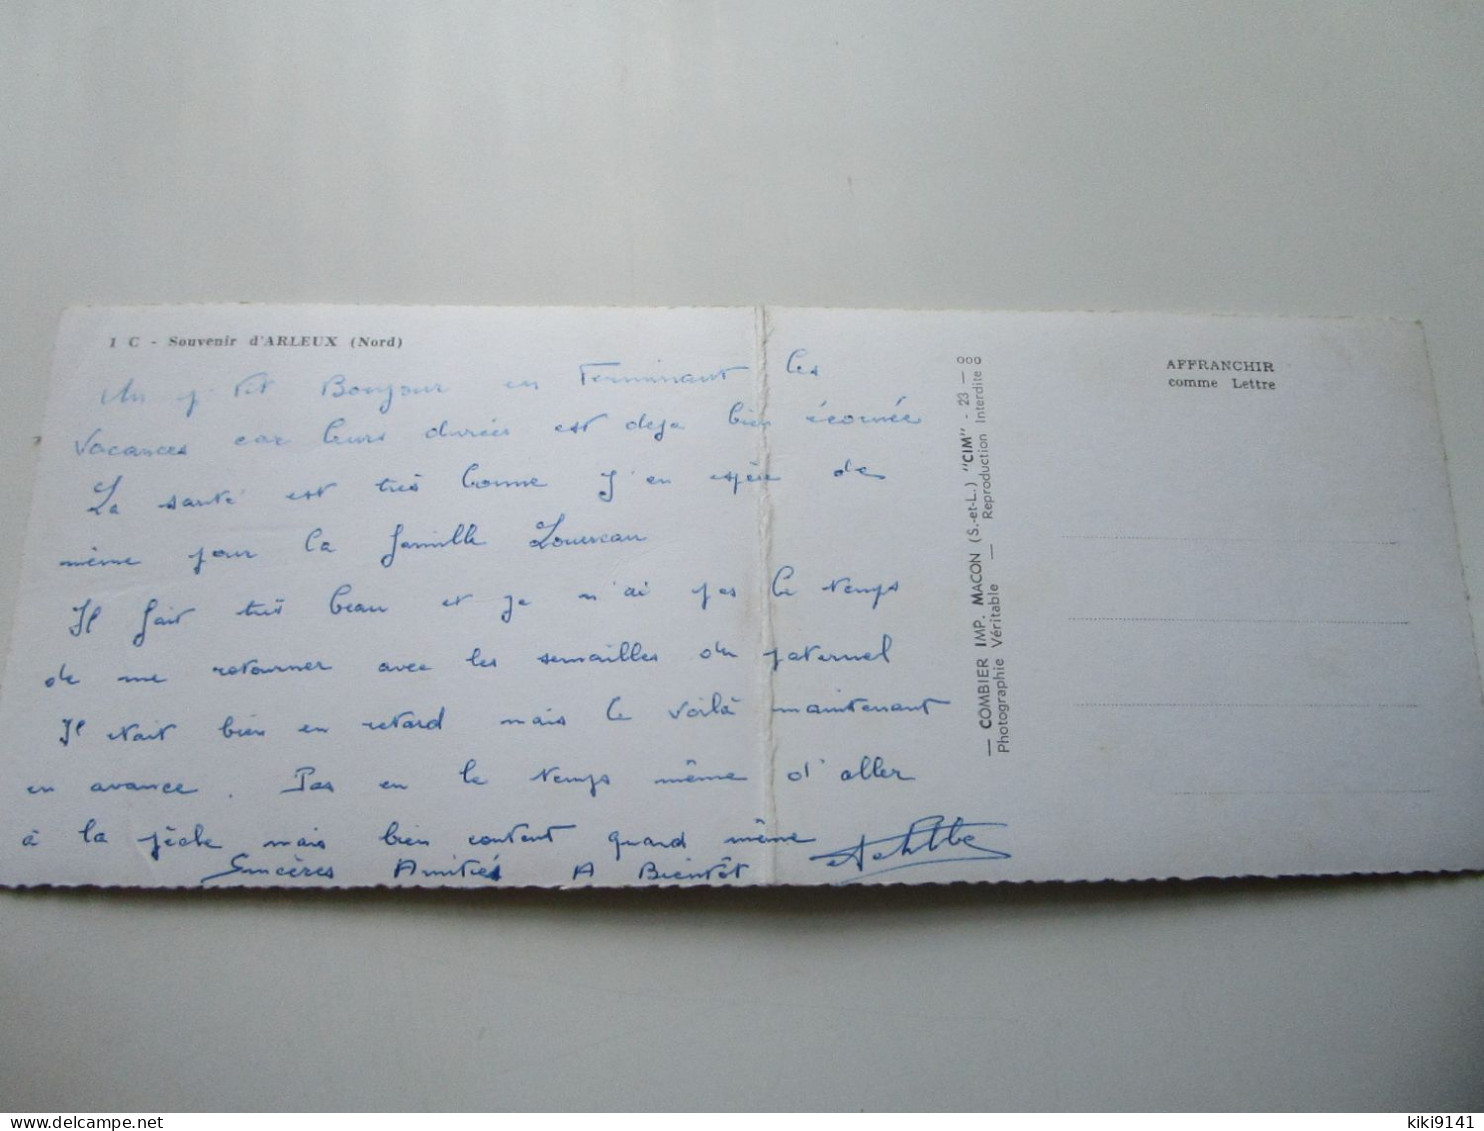 1 C - Souvenir d'ARLEUX (Nord)
Un p'tit Bonjour en Terminant les
Vacances car leurs durées est deja bien écornée
La santé est très bonne J'en espère de
même pour la famille Louveau
Il fait très beau et je n'ai pas le temps
de me retourner avec les semailles du paternel
Il etait bien en retard mais le voilà maintenant
en avance. Pas eu le temps même d'aller
à la pêche mais bien content quand même
Sincères Amitiés A Bientôt
— COMBIER IMP. MACON (S.-et-L.) "CIM" - 23 — OOO
Photographie Véritable — Reproduction Interdite
AFFRANCHIR
comme Lettre
kiki9141